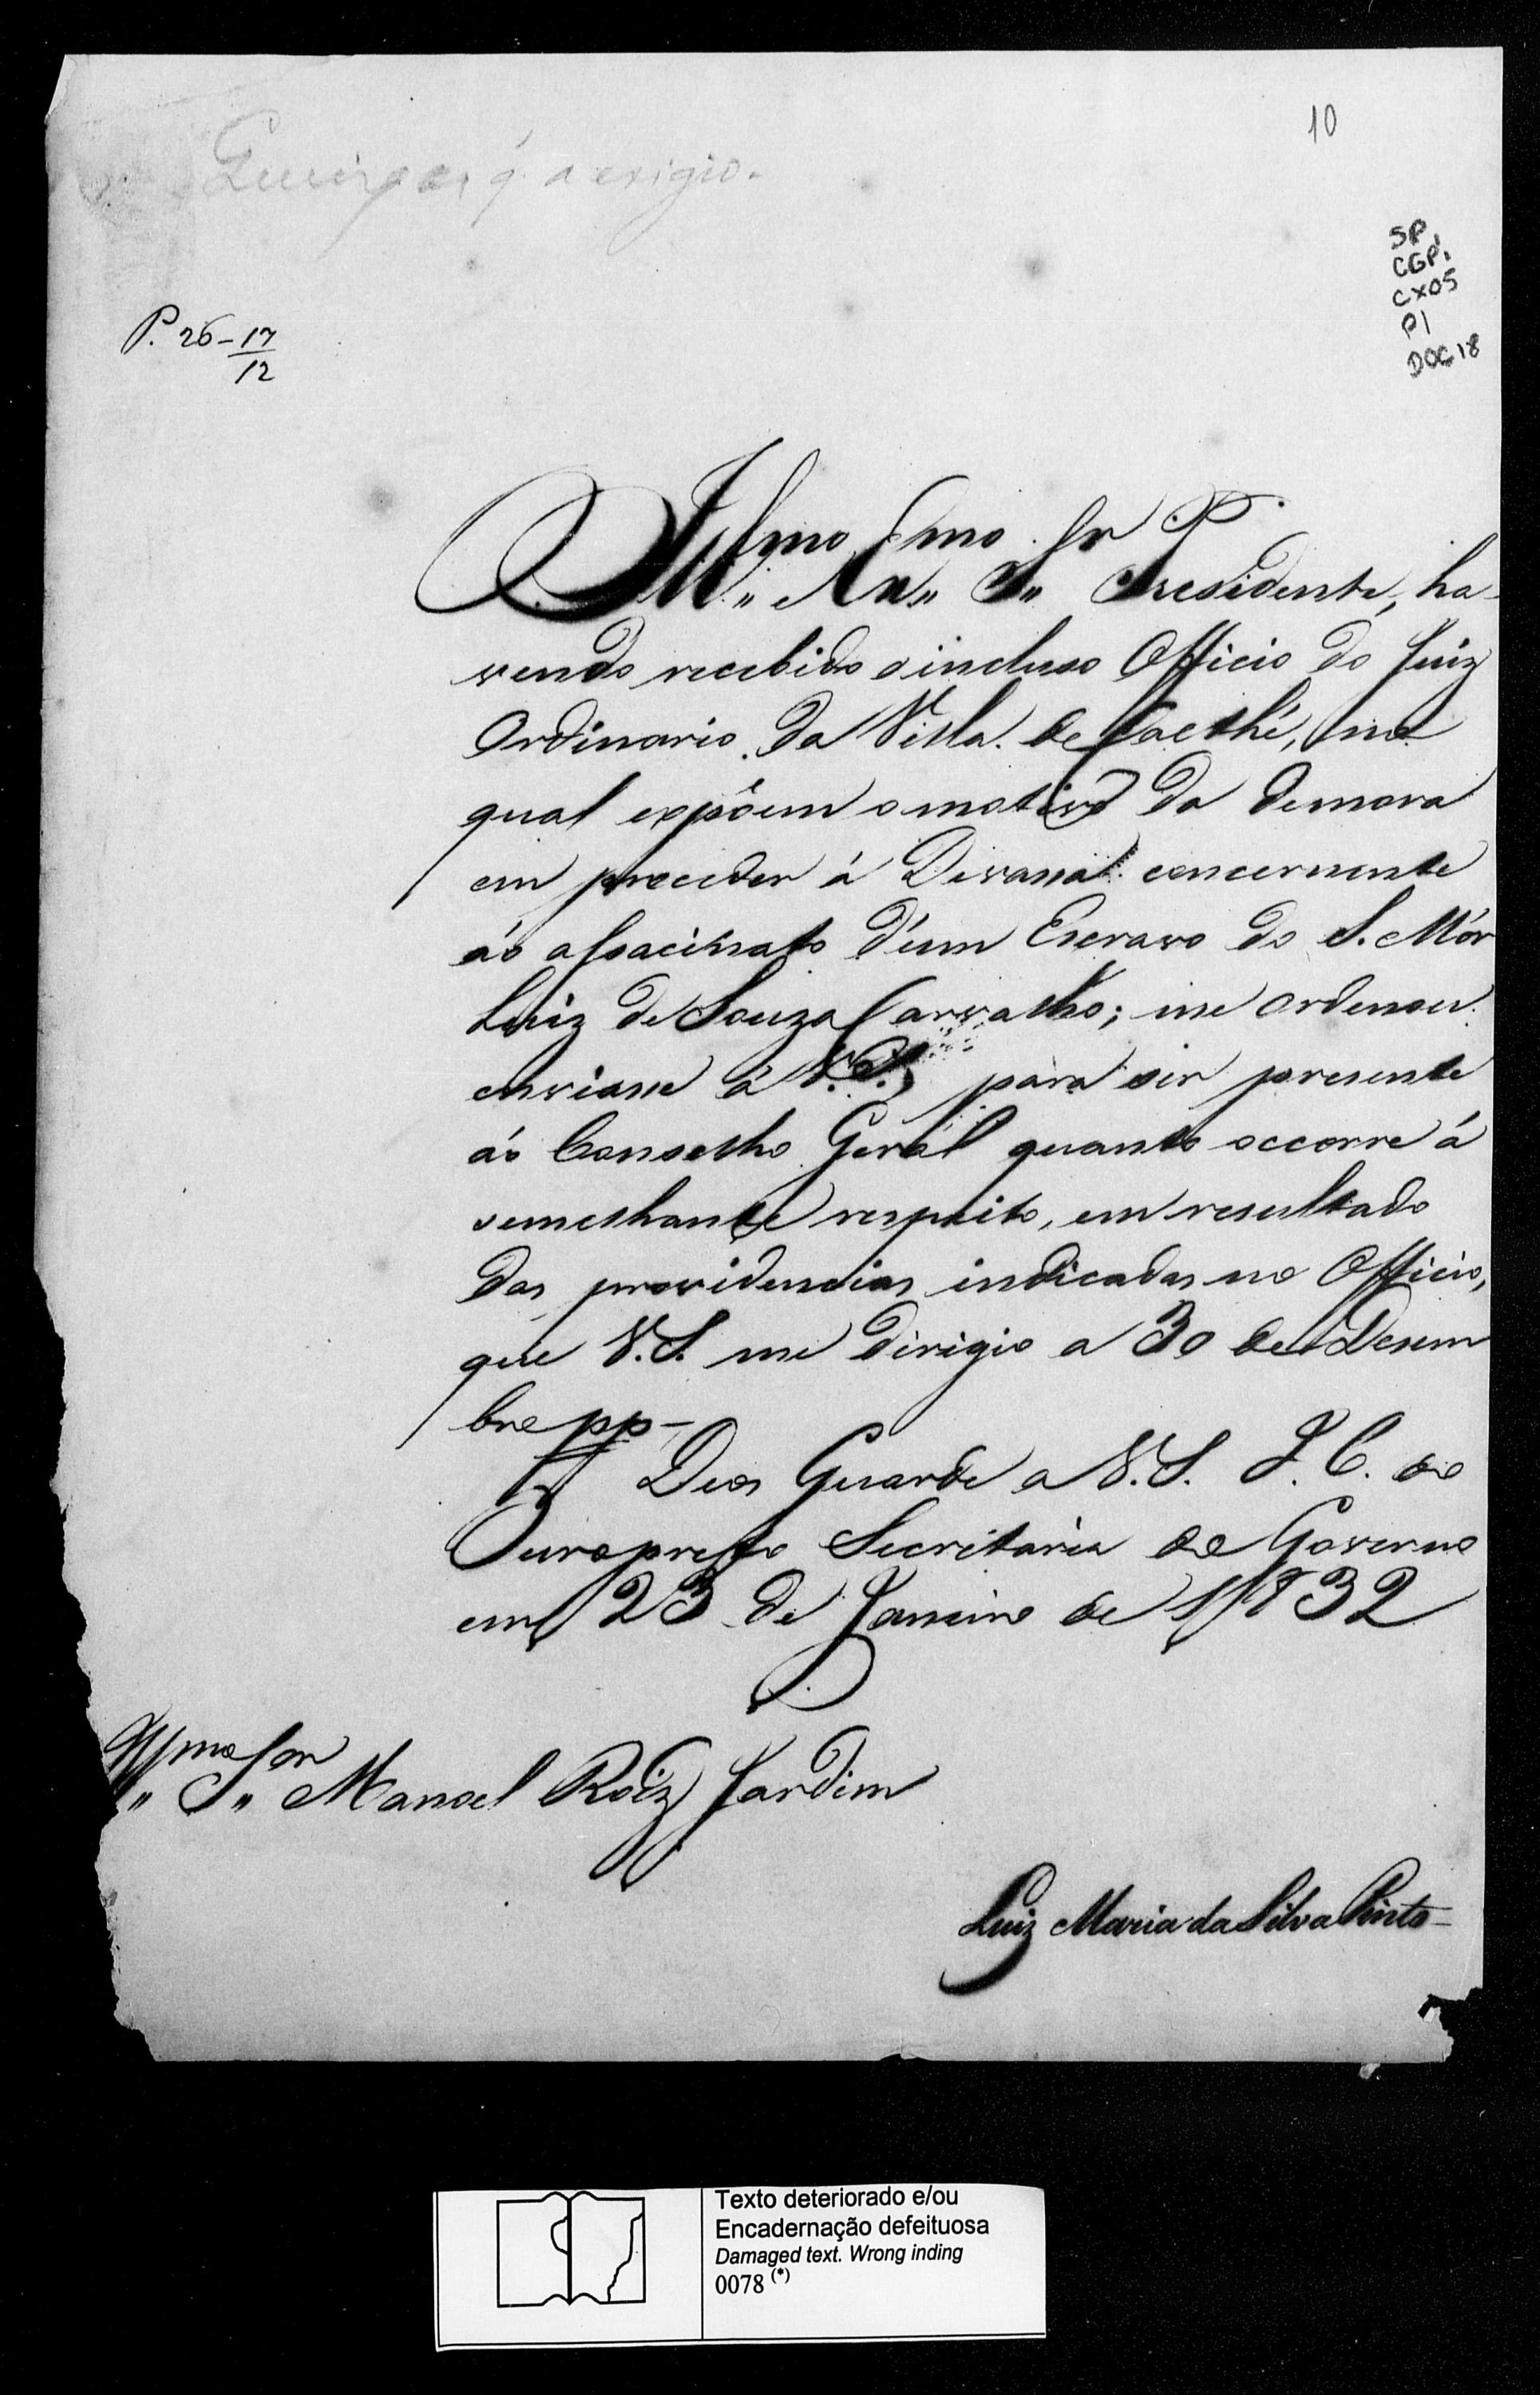 10
q. a exigio.
SP.
CGP1
CX05
P1
DOC 18
P. 26-17/12
O Illmo Exmo Snr Presidente, ha
vendo recebido o incluso Officio do Juiz
Ordinario da Villa de Caethé, no
qual expõem o motivo da demora
em proceder á Devassa concernente
áo assacinato d'um Escravo do S. Mór
Luiz de Souza Carvalho; me ordenou
enviasse á V.S., para ser presente
áo Conselho Geral quanto occorre á
semelhante respeito, em resultado
das providencias indicadas no Officio,
que V.S. me dirigio a 30 de Desem
bro pp-
Deos Guarde a V.S. I. C. do
Ouropreto Secretaria do Governo
em 23 de Janeiro de 1832
Illmo Snr Manoel Roiz Jardim
Luiz Maria da Silva Pinto
Texto deteriorado e/ou
Encadernação defeituosa
Damaged text. Wrong inding
0078 (*)